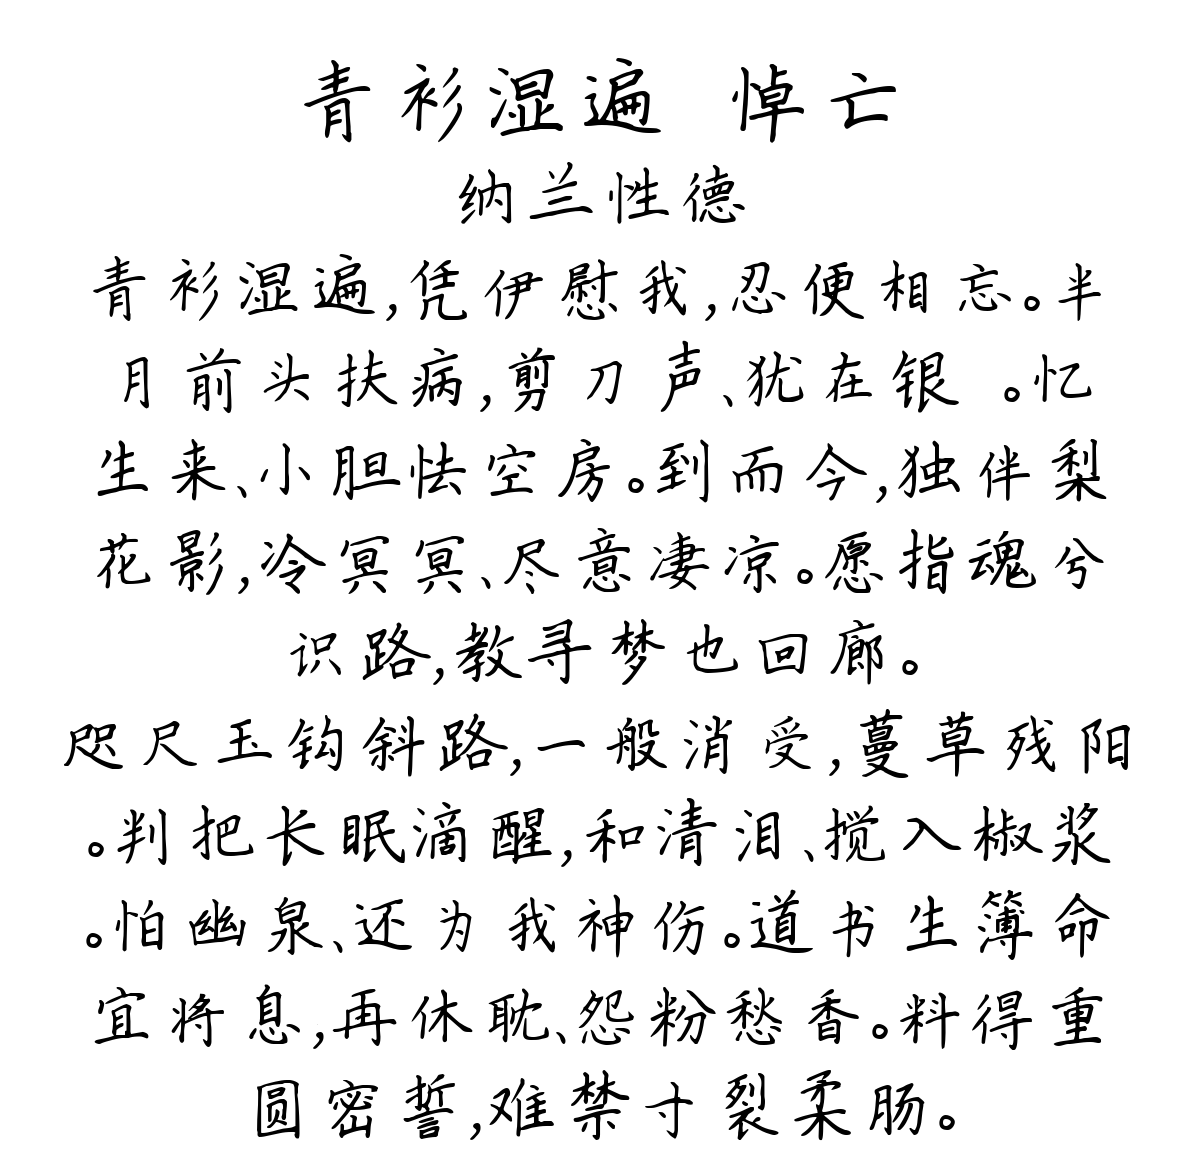 青衫湿遍 悼亡
纳兰性德
青衫湿遍,凭伊慰我,忍便相忘。半
月前头扶病,剪刀声、犹在银 。忆
生来、小胆怯空房。到而今,独伴梨
花影,冷冥冥、尽意凄凉。愿指魂兮
识路,教寻梦也回廊。
咫尺玉钩斜路,一般消受,蔓草残阳
。判把长眠滴醒,和清泪、搅入椒浆
。怕幽泉、还为我神伤。道书生簿命
宜将息,再休耽、怨粉愁香。料得重
圆密誓,难禁寸裂柔肠。